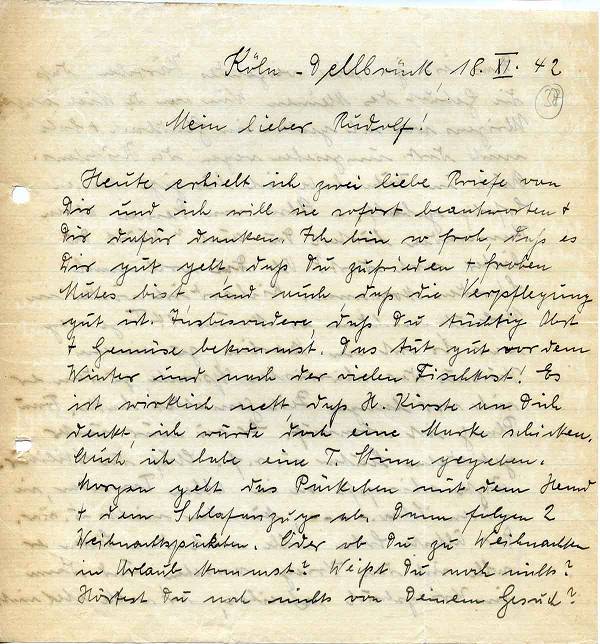 Köln - Dellbrück, 18. XI. 42
38
Mein lieber Rudolf!
Heute erhielt ich zwei liebe Briefe von
Dir und ich will sie sofort beantworten +
Dir dafür danken. Ich bin so froh, daß es
Dir gut geht, daß Du zufrieden + frohen
Mutes bist und auch daß die Verpflegung
gut ist. Insbesondere, daß Du tüchtig Obst
+ Gemüse bekommst. Das tut gut vor dem
Winter und nach der vielen Fischkost! Es
ist wirklich nett, daß H. Kirste an Dich
denkt, ich würde doch eine Marke schicken.
Auch ich habe eine T. gegeben.
Morgen geht das Päckchen mit dem Hemd
+ dem Schlafanzug ab. Dann folgen 2
Weihnachtspäckchen. Oder ob Du zu Weihnachten
in Urlaub kommst? Weißt Du noch nichts?
Hörtest Du noch nichts von Deinem Gesuch?